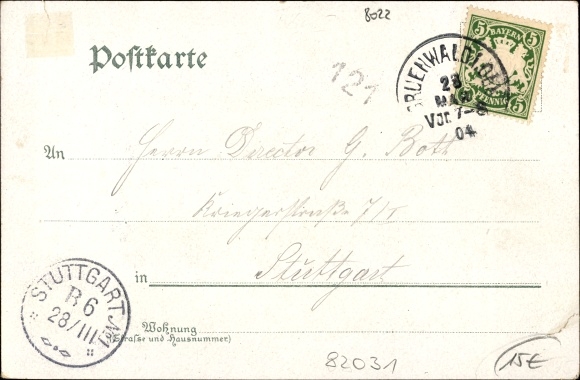 8022
Postkarte
5 BAYERN 5
5 PFENNIG 5
121
GRUENWALD
28
MAR
Vor. 7-8
04
An Herrn Director G. Roth
Kriegerstraße 7/I
in Stuttgart
STUTTGART
B 6
28/III
Wohnung
(Straße und Hausnummer)
82031
15€